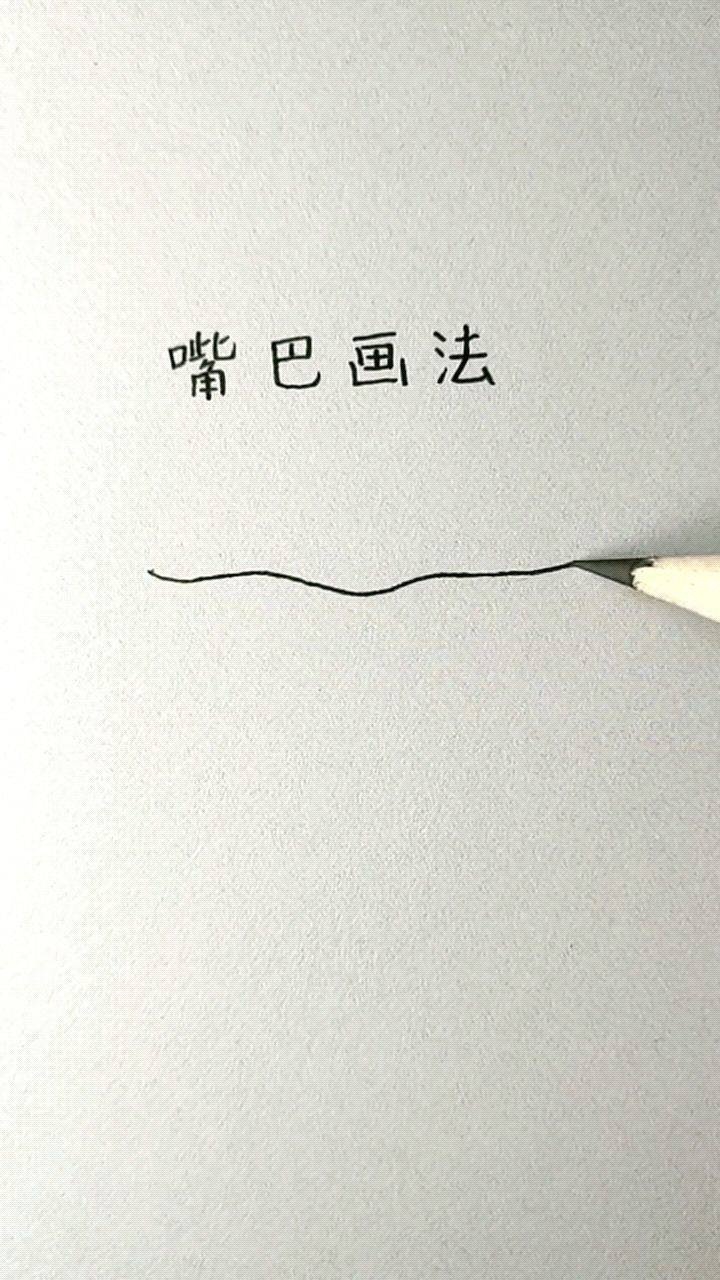 嘴巴画法